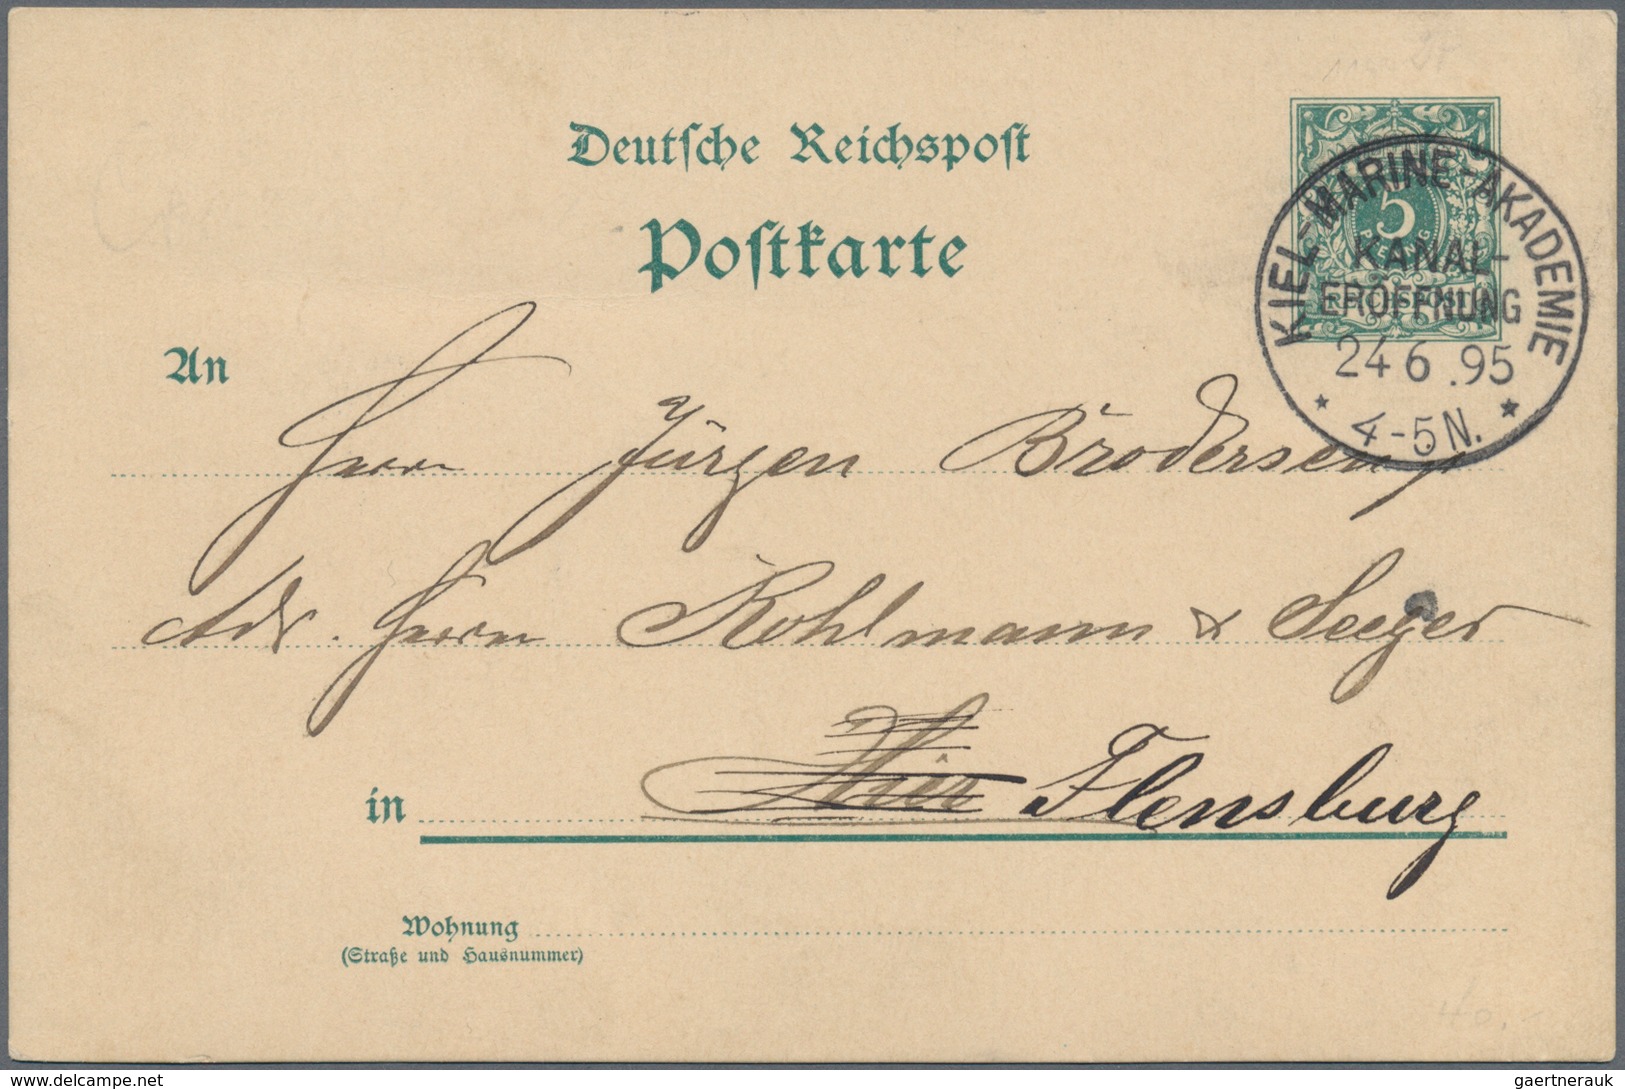 Deutsche Reichspost
Postkarte
5
PFENNIG
REICHSPOST
KIEL-MARINE-AKADEMIE
KANAL-
ERÖFFNUNG
24 6 .95
* 4-5 N. *
An
Herrn Jürgen Brodersen
Adr. Herrn Kohlmann & Seeger
in Hier Flensburg
Wohnung
(Straße und Hausnummer)
delcampe.net
gaertnerauk